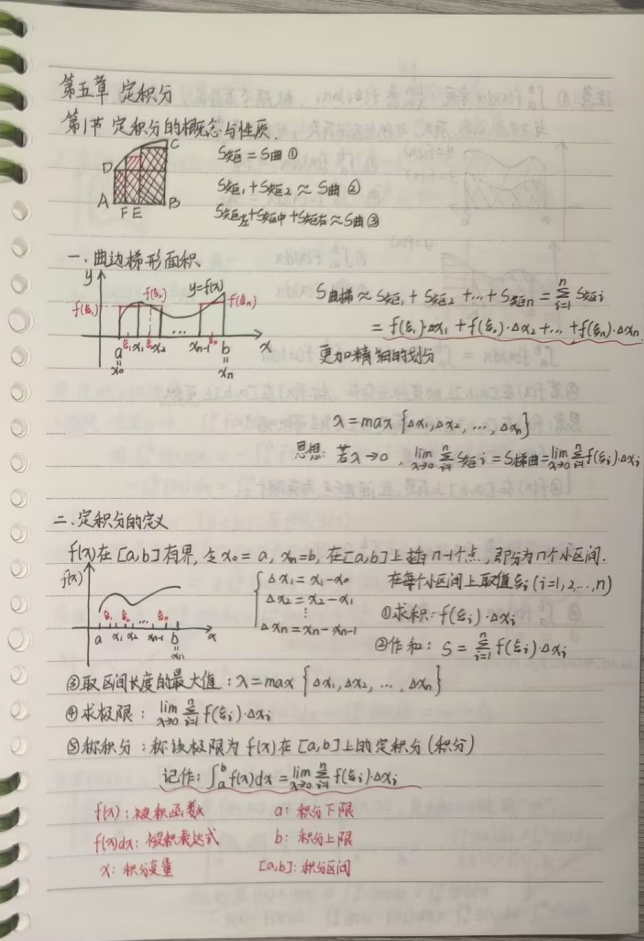 第五章 定积分
第1节 定积分的概念与性质.
D C
A F E B
S矩 = S曲 ①
S矩₁ + S矩₂ ≈ S曲 ②
S矩左+S矩中+S矩右≈S曲 ③
一.曲边梯形面积
y f(ξ₁) f(ξ₂) y=f(x) f(ξn)
ξ₁ x₁ ξ₂ x₂ ... xn-1 ξn x
a b
x₀ xn
S曲梯 ≈ S矩₁ + S矩₂ + ... + S矩n = ∑(i=1→n) S矩i
= f(ξ₁)·Δx₁ + f(ξ₂)·Δx₂ + ... + f(ξn)·Δxn
更加精细的划分
λ = max {Δx₁, Δx₂, ..., Δxn}
思想: 若λ→0, lim(λ→0) ∑(i=1→n) S矩i = S梯曲 = lim(λ→0) ∑(i=1→n) f(ξi)·Δxi
二.定积分的定义
f(x)在[a,b]有界, 令x₀ = a, xn=b, 在[a,b]上插n-1个点, 即分为n个小区间.
f(x)
a ξ₁ x₁ ξ₂ x₂ ... xn-1 ξn b x
xn
Δx₁ = x₁-x₀
Δx₂ = x₂-x₁
⋮
Δxn = xn-xn-1
在每个小区间上取值ξi (i=1,2,...,n)
①求积: f(ξi)·Δxi
②作和: S = ∑(i=1→n) f(ξi)·Δxi
③取区间长度的最大值: λ=max {Δx₁, Δx₂, ..., Δxn}
④求极限: lim(λ→0) ∑(i=1→n) f(ξi)·Δxi
⑤称积分: 称该极限为f(x)在[a,b]上的定积分(积分)
记作: ∫ₐᵇ f(x)dx = lim(λ→0) ∑(i=1→n) f(ξi)·Δxi
f(x): 被积函数 a: 积分下限
f(x)dx: 被积表达式 b: 积分上限
x: 积分变量 [a,b]: 积分区间